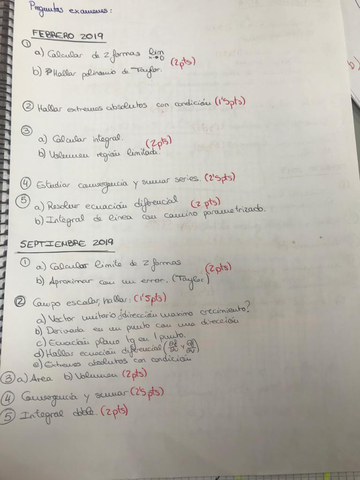 Preguntas exámenes:
FEBRERO 2019
① a) Calcular de 2 formas lim →0 (2pts)
b) Hallar polinomio de Taylor.
② Hallar extremos absolutos con condición (1'5pts)
③ a) Calcular integral. (2pts)
b) Volumen región limitada.
④ Estudiar convergencia y sumar series. (2'5pts)
⑤ a) Resolver ecuación diferencial (2 pts)
b) Integral de línea con camino parametrizado.
SEPTIEMBRE 2019
① a) Calcular límite de 2 formas (2pts)
b) Aproximar con un error. (Taylor)
② Campo escalar, hallar: (1'5pts)
a) Vector unitario / dirección máximo crecimiento?
b) Derivada en un punto con una dirección
c) Ecuación plano tg en 1 punto.
d) Hallar ecuación diferencial
e) Extremos absolutos con condición
③ a) Area b) Volumen (2pts)
④ Convergencia y sumar (2'5pts)
⑤ Integral doble. (2pts)